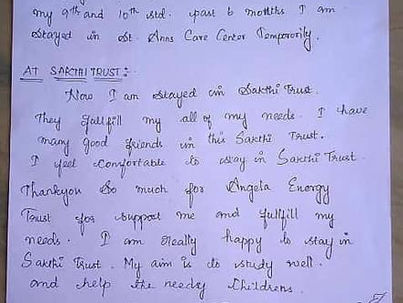 my 9th and 10th std. past 6 months I am
stayed in St. Anns Care Center Temporority.
AT SAKTHI TRUST:-
Now I am stayed in Sakthi Trust.
They fullfill my all of my needs. I have
many good friends in this Sakthi Trust.
I feel comfortable to stay in Sakthi Trust.
Thankyou So much for Angela Energy
Trust for support me and fullfill my
needs. I am really happy to stay in
Sakthi Trust. My aim is to study well.
and help the needy Childrens.